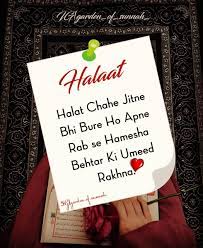 NRgarden_of_sunnah_
Halaat
Halat Chahe Jitne
Bhi Bure Ho Apne
Rab se Hamesha
Behtar Ki Umeed
Rakhna.
NRgarden_of_sunnah_